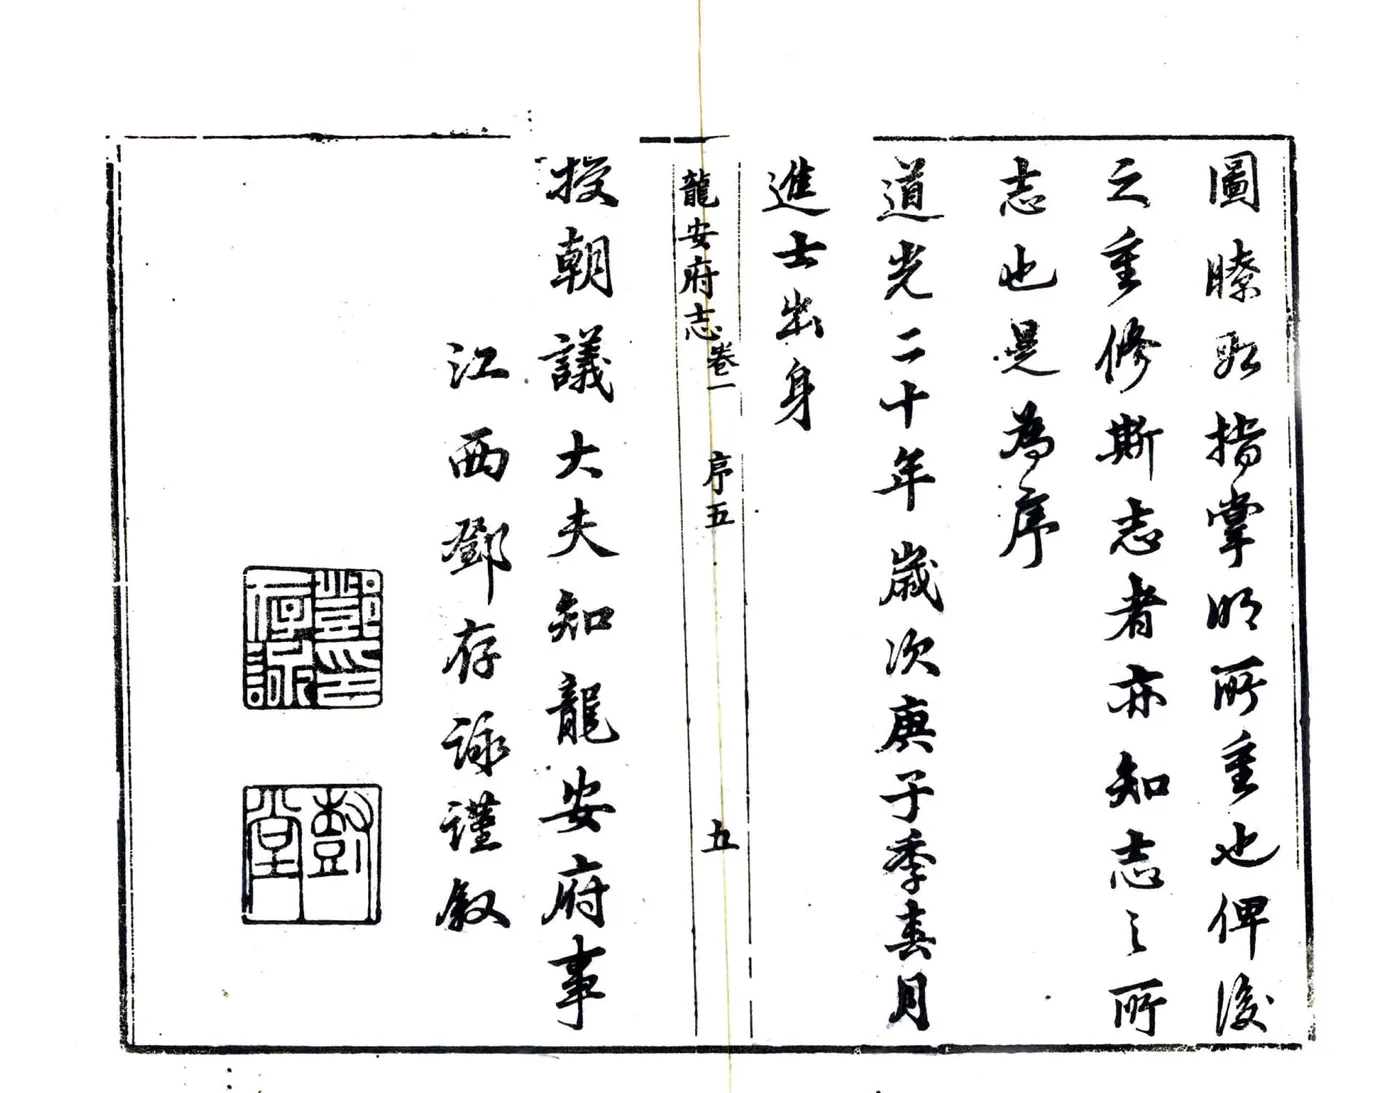 圖瞭如指掌明所重也俾後
之重修斯志者亦知志之所
志也是為序
道光二十年歲次庚子季春月
進士出身
龍安府志 卷一 序五 五
授朝議大夫知龍安府事
江西鄧存詠謹敘
鄧印存詠
彭堂